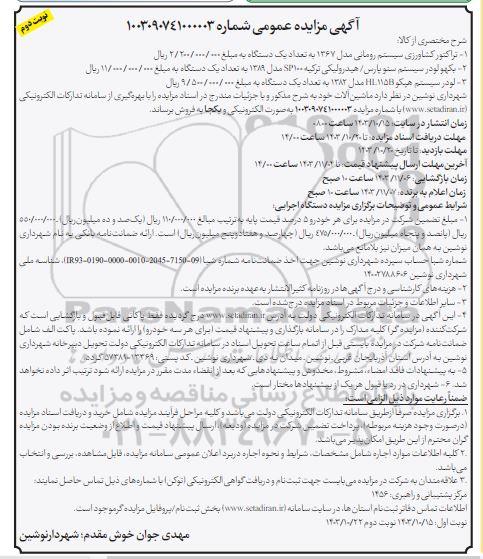 نوبت دوم
آگهی مزایده عمومی شماره ۱۰۰۳۰۹۰۷۴۱۰۰۰۰۰۳
شرح مختصری از کالا:
۱- تراکتور کشاورزی سیستم رومانی مدل ۱۳۶۷ به تعداد یک دستگاه به مبلغ ۲/۲۰۰/۰۰۰/۰۰۰ ریال
۲- بکهو لودر سیستم سنو پارس/ هیدرولیکی ترکیه SP۱۰۰ مدل ۱۳۸۹ به تعداد یک دستگاه به مبلغ ۱۱/۰۰۰/۰۰۰/۰۰۰ ریال
۳- لودر سیستم هپکو HL۱۱۵B مدل ۱۳۸۲ به تعداد یک دستگاه به مبلغ ۹/۵۰۰/۰۰۰/۰۰۰ ریال
شهرداری نوشین در نظر دارد ماشین‌آلات خود به شرح مذکور و با جزئیات مندرج در اسناد مزایده را با بهره‌گیری از سامانه تدارکات الکترونیکی
(www.setadiran.ir) با شماره مزایده ۱۰۰۳۰۹۰۷۴۱۰۰۰۰۰۳ به صورت الکترونیکی و یکجا به فروش برساند.
زمان انتشار در سایت: ۱۴۰۳/۱۰/۱۵ ساعت ۰۸:۰۰
مهلت دریافت اسناد مزایده: تا ۱۴۰۳/۱۰/۲۰ ساعت ۱۴/۰۰
مهلت بازدید: تا تاریخ ۱۴۰۳/۱۰/۳۰
آخرین مهلت ارسال پیشنهاد قیمت: تا ۱۴۰۳/۱۱/۰۲ ساعت ۱۴/۰۰
زمان بازگشایی: ۱۴۰۳/۱۱/۰۶ ساعت ۱۰ صبح
زمان اعلام به برنده: ۱۴۰۳/۱۱/۰۷ ساعت ۱۰ صبح
شرایط عمومی و توضیحات برگزاری مزایده دستگاه اجرایی:
۱- مبلغ تضمین شرکت در مزایده برای هر خودرو ۵ درصد قیمت پایه به ترتیب مبالغ ۱۱۰/۰۰۰/۰۰۰ ریال (یکصد و ده میلیون ریال)، ۵۵۰/۰۰۰/۰۰۰
ریال (پانصد و پنجاه میلیون ریال)، ۴۷۵/۰۰۰/۰۰۰ ریال (چهارصد و هفتاد و پنج میلیون ریال) است. ارائه ضمانت‌نامه بانکی به نام شهرداری
نوشین به همان میزان نیز بلامانع می‌باشد.
شماره شبا حساب سپرده شهرداری نوشین جهت اخذ ضمانت‌نامه شماره شبا (IR93-0190-0000-0010-2045-7150-09)، شناسه ملی
شهرداری نوشین ۱۴۰۰۲۷۸۸۶۰۶
۲- هزینه‌های کارشناسی و درج آگهی‌ها در روزنامه کثیرالانتشار به عهده برنده مزایده است.
۳- سایر اطلاعات و جزئیات مربوط در اسناد مزایده درج شده است.
۴- این آگهی در سامانه تدارکات الکترونیکی دولت به آدرس www.setadiran.ir درج گردیده فقط پاکاتی قابل قبول و بازگشایی است که
شرکت‌کننده (مزایده‌گر) کلیه مدارک را در سامانه بارگذاری و پیشنهاد قیمت (برای هر سه خودرو) را ارائه نموده باشد. پاکت الف شامل
ضمانت‌نامه شرکت در مزایده بایستی قبل از اتمام ساعت تحویل اسناد در سامانه تدارکات الکترونیکی دولت تحویل دبیرخانه شهرداری
نوشین به آدرس استان آذربایجان غربی، نوشین، میدان نه دی، شهرداری نوشین، کد پستی: ۵۷۳۸۹-۱۳۳۶۹ گردد.
۵- به پیشنهادات فاقد امضاء، مشروط، مخدوش و پیشنهادهایی که بعد از انقضاء مدت مقرر در مزایده ارائه شود ترتیب اثر داده نخواهد
شد. ۶- شهرداری در رد یا قبول هر یک از پیشنهادها مختار است.
ضمناً رعایت موارد ذیل الزامی است:
۱. برگزاری مزایده صرفا از طریق سامانه تدارکات الکترونیکی دولت می‌باشد و کلیه مراحل فرآیند مزایده شامل خرید و دریافت اسناد مزایده
(در صورت وجود هزینه مربوطه)، پرداخت تضمین شرکت در مزایده (ودیعه)، ارسال پیشنهاد قیمت و اطلاع از وضعیت برنده بودن مزایده
گران محترم از این طریق امکان‌پذیر می‌باشد.
۲. کلیه اطلاعات موارد اجاره شامل مشخصات، شرایط و نحوه اجاره در برد اعلان عمومی سامانه مزایده، قابل مشاهده، بررسی و انتخاب
می‌باشد.
۳. علاقه‌مندان به شرکت در مزایده می‌بایست جهت ثبت‌نام و دریافت گواهی الکترونیکی (توکن) با شماره‌های ذیل تماس حاصل نمایند:
مرکز پشتیبانی و راهبری: ۱۴۵۶
اطلاعات تماس دفاتر ثبت‌نام استان‌ها، در سایت سامانه (www.setadiran.ir) بخش ثبت‌نام/پروفایل مزایده‌گر موجود است.
نوبت اول: ۱۴۰۳/۱۰/۱۵ نوبت دوم ۱۴۰۳/۱۰/۲۲
مهدی جوان خوش مقدم؛ شهردار نوشین